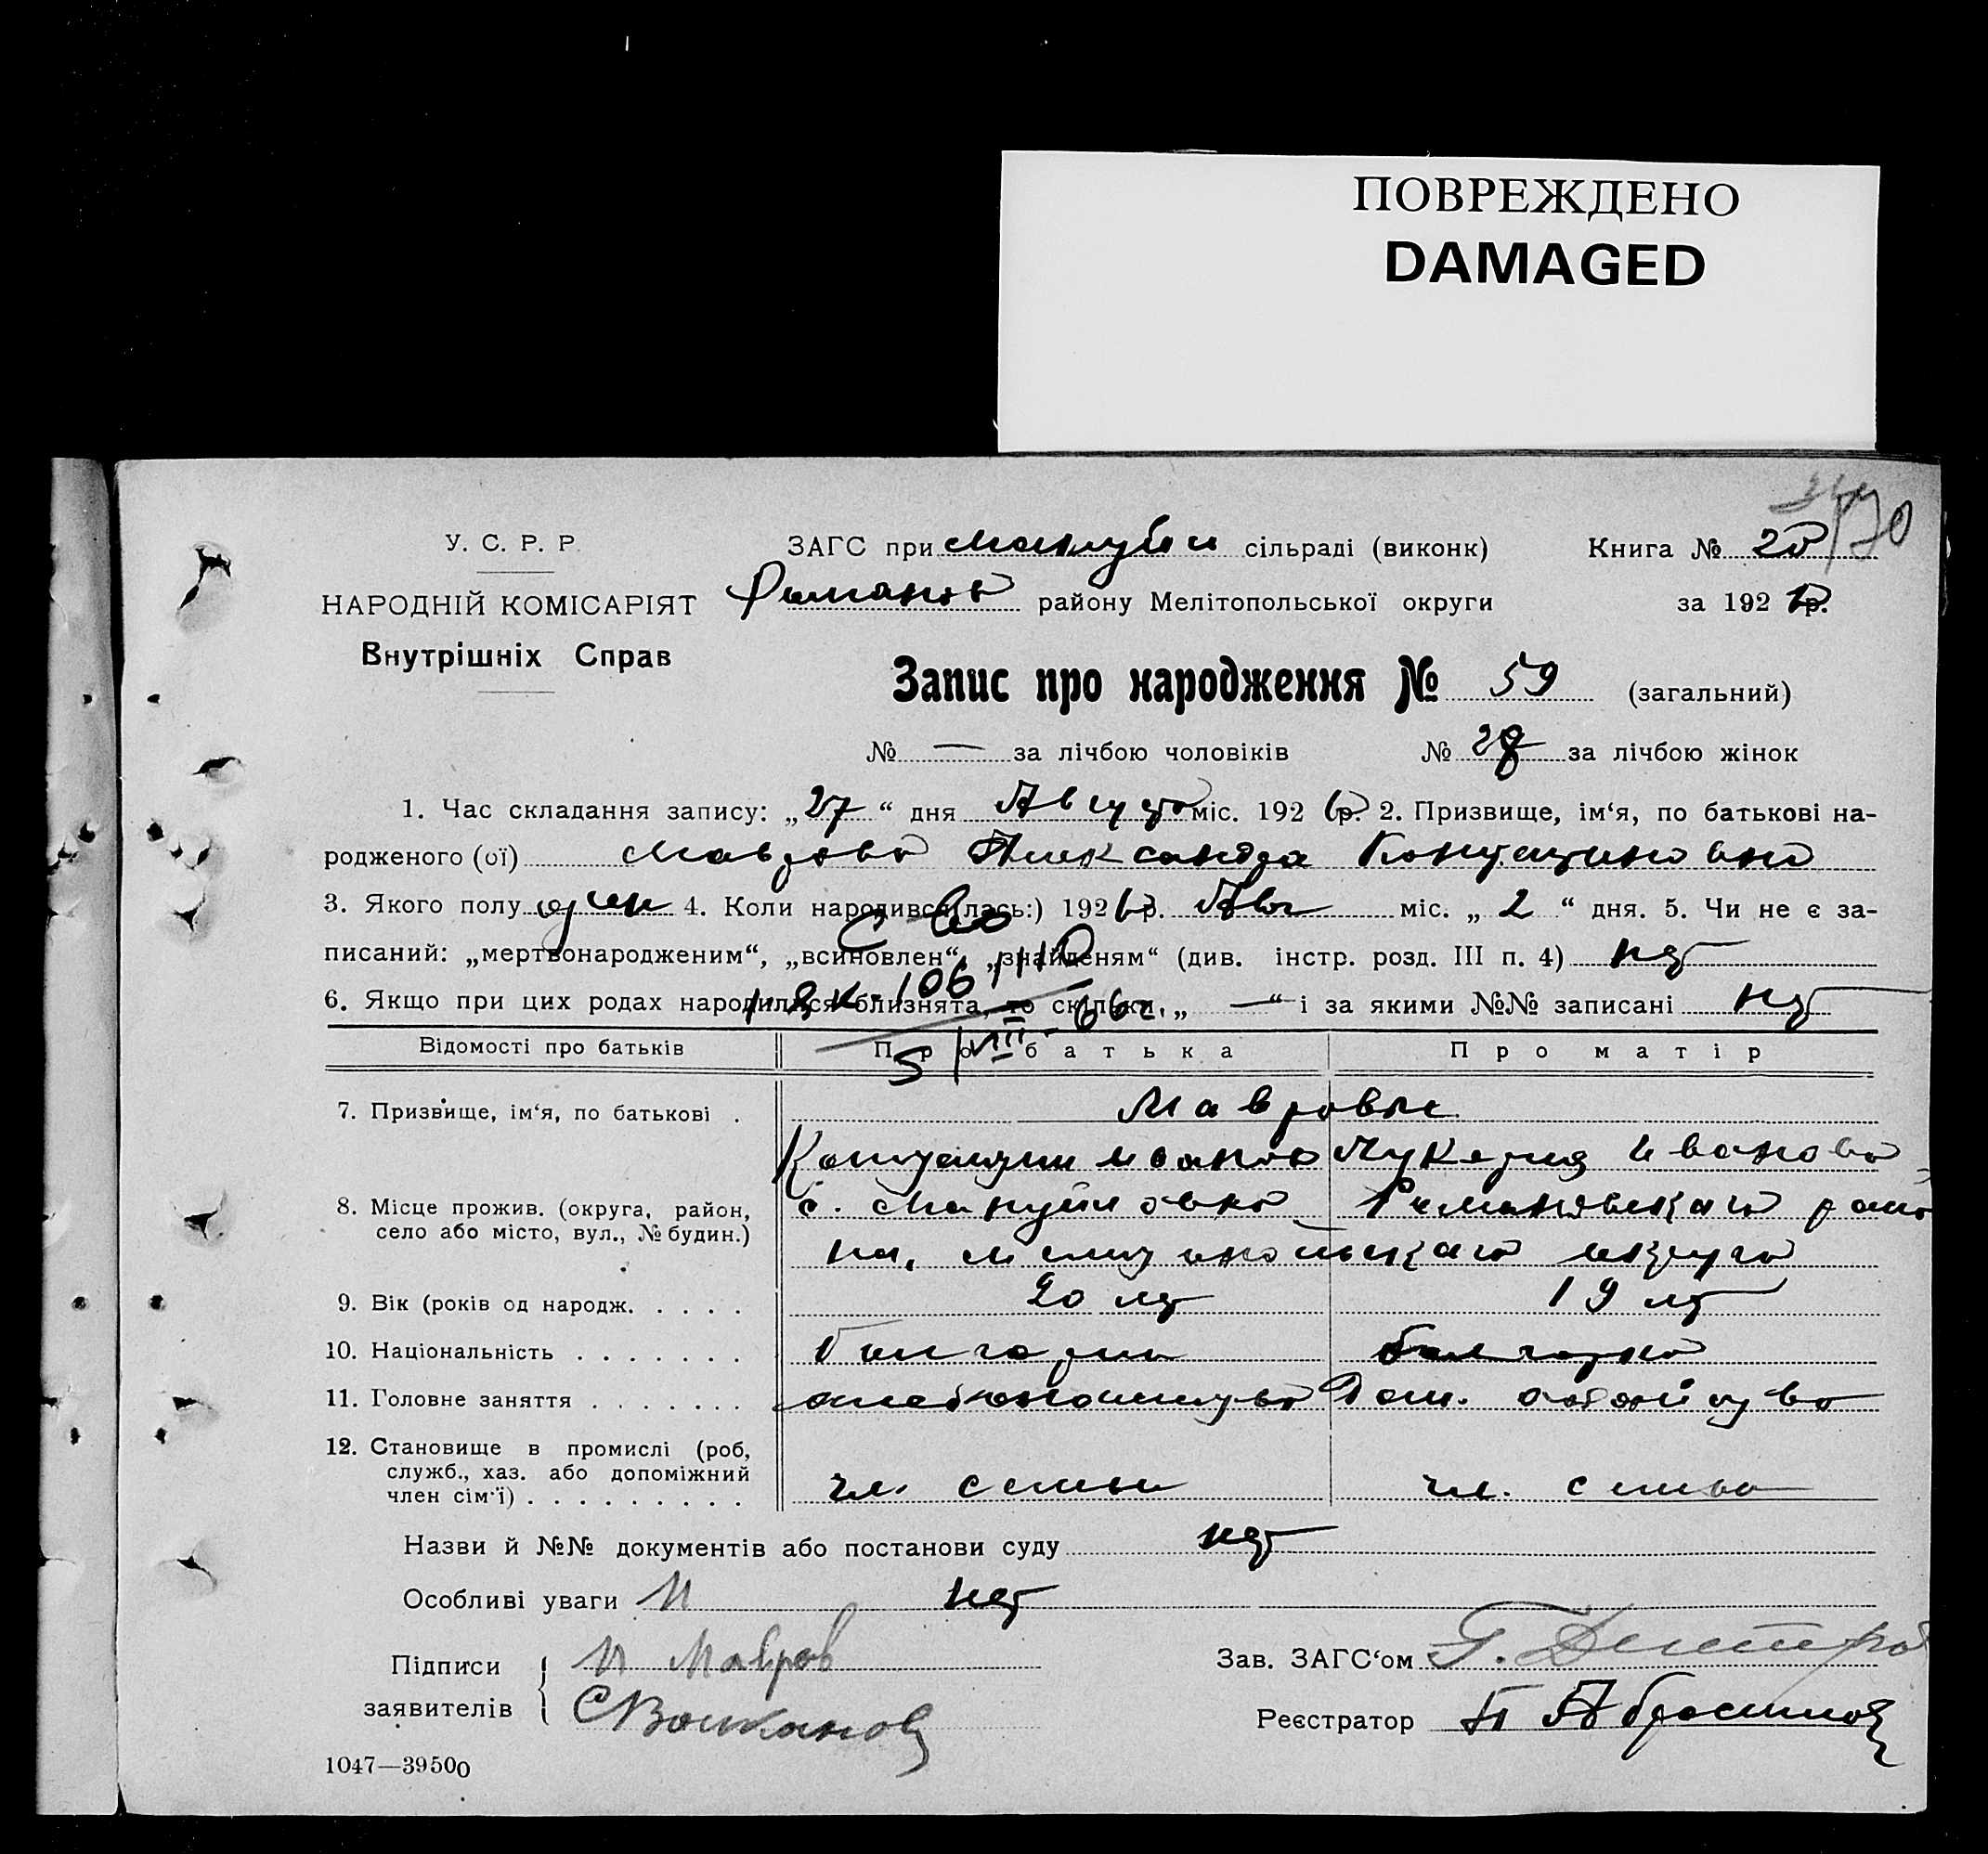 ПОВРЕЖДЕНО
DAMAGED
У. С. Р. Р. ЗАГС при сільраді (виконк) Книга № 20
НАРОДНІЙ КОМІСАРІЯТ Романов району Мелітопольської округи за 192 р.
Внутрішніх Справ
Запис про народження № 59 (загальний)
№ — за лічбою чоловіків № 28 за лічбою жінок
1. Час складання запису: „27“ дня Август міс. 1926 р. 2. Призвище, ім‘я, по батькові на-
родженого (ої) Маврова Александра Константиновна
3. Якого полу жен 4. Коли народився(лась:) 1926 р. Авг міс. „2“ дня. 5. Чи не є за-
писаний: „мертвонародженим“, „всиновлен“, „знайденям“ (див. інстр. розд. III п. 4) нет
6. Якщо при цих родах народилися близнята, то скільки, „—“ і за якими №№ записані нет
с-во
1-ЯК-106111
5/VIII-66г.
Відомості про батьків Про батька Про матір
7. Призвище, ім‘я, по батькові . Мавровы
Константин Иванов Лукерия Иванова
8. Місце прожив. (округа, район, с. Мануйловка Романовскаго райо
село або місто, вул., № будин.) на, Мелитопольскаго округа
9. Вік (років од народж. . . . . 20 лет 19 лет
10. Національність . . . . . . . болгарин болгарка
11. Головне заняття . . . . . . . хлебопашество Дом. хозяйство
12. Становище в промислі (роб,
служб., хаз. або допоміжний
член сім‘ї) . . . . . . . . . чл. семьи чл. семьи
Назви й №№ документів або постанови суду нет
Особливі уваги нет
Підписи И Мавров Зав. ЗАГС‘ом Г.
заявителів С Волканов Реєстратор П Абросимов
1047—39500